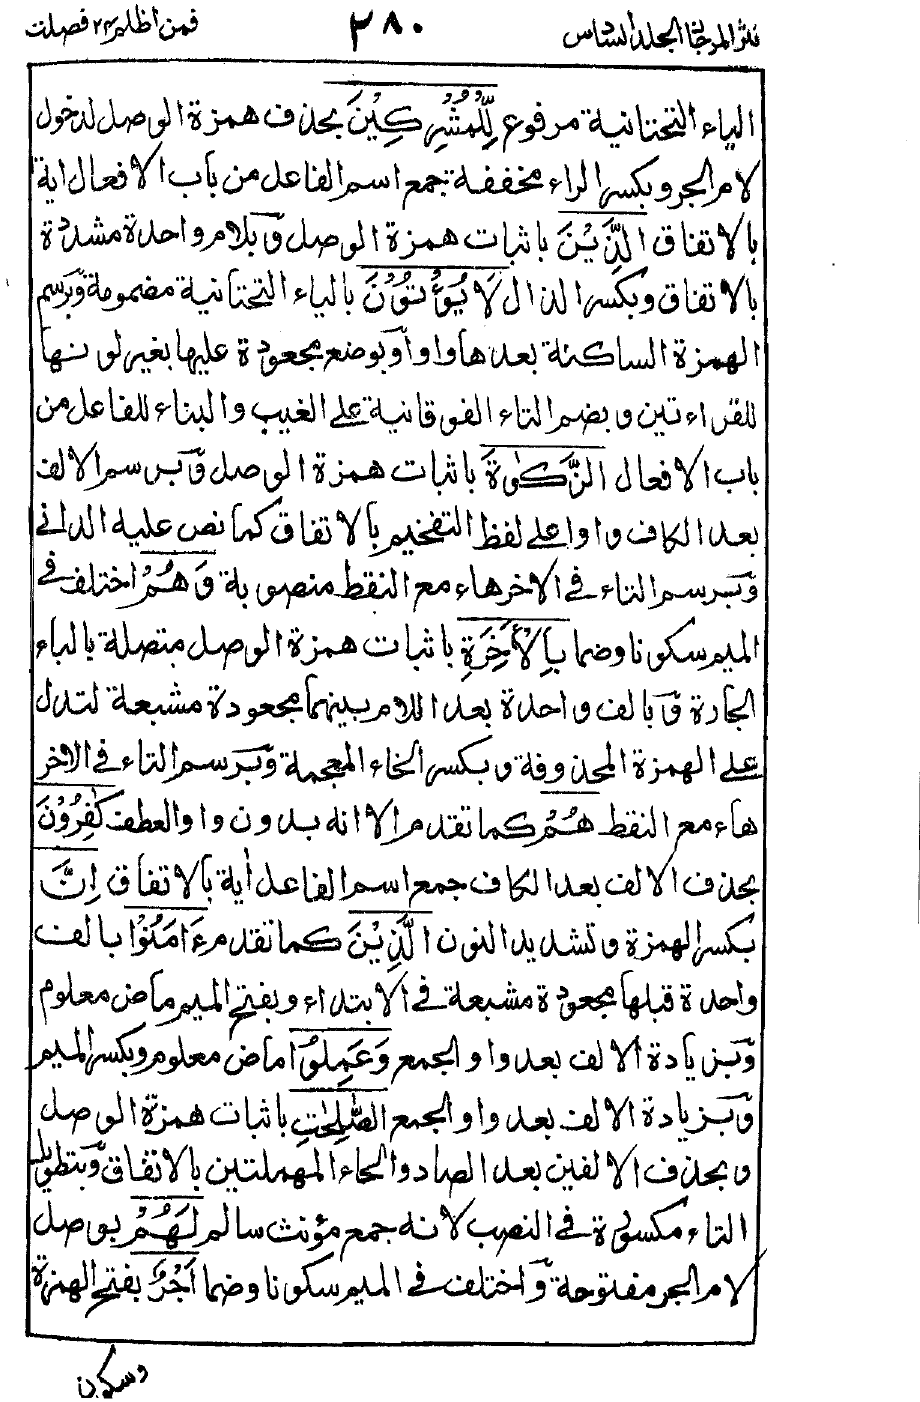 نثر المرجان المجلد السادس
٣٨٠
فمن اظلم ٢٤ فصلت
الياء التحتانية مرفوع لِّلْمُشْرِكِيْنَ بحذف همزة الوصل لدخول
لام الجر وبكسر الراء مخففة جمع اسم الفاعل من باب الافعال اية
بالاتفاق الَّذِيْنَ باثبات همزة الوصل وبلام واحدة مشددة
بالاتفاق وبكسر الذال لَا يُؤْتُوْنَ بالياء التحتانية مضمومة وبرسم
الهمزة الساكنة بعدها واوا وبوضع مجعودة عليها بغير لونها
للقراءتين وبضم التاء الفوقانية على الغيب والبناء للفاعل من
باب الافعال الزَّكٰوةَ باثبات همزة الوصل وبرسم الالف
بعد الكاف واوا على لفظ التفخيم بالاتفاق كما نص عليه الداني
وبرسم التاء في الاخر هاء مع النقط منصوبة وَهُمْ اختلف في
الميم سكونا وضما بِالْاٰخِرَةِ باثبات همزة الوصل متصلة بالباء
الجارة وبالف واحدة بعد اللام بينهما مجعودة مشبعة لتدل
على الهمزة المحذوفة وبكسر الخاء المعجمة وبرسم التاء في الاخر
هاء مع النقط هُمْ كما تقدم الا انه بدون واو العطف كٰفِرُوْنَ
بحذف الالف بعد الكاف جمع اسم الفاعل أية بالاتفاق اِنَّ
بكسر الهمزة وتشديد النون الَّذِيْنَ كما تقدم ءَامَنُوْا بالف
واحدة قبلها مجعودة مشبعة في الابتداء وبفتح الميم ماض معلوم
وبزيادة الالف بعد واو الجمع وَعَمِلُوا ماض معلوم وبكسر الميم
وبزيادة الالف بعد واو الجمع الصّٰلِحٰتِ باثبات همزة الوصل
وبحذف الالفين بعد الصاد والحاء المهملتين بالاتفاق وبتطويل
التاء مكسورة في النصب لانه جمع مؤنث سالم لَهُمْ بوصل
لام الجر مفتوحة واختلف في الميم سكونا وضما اَجْرٌ بفتح الهمزة
وسكون